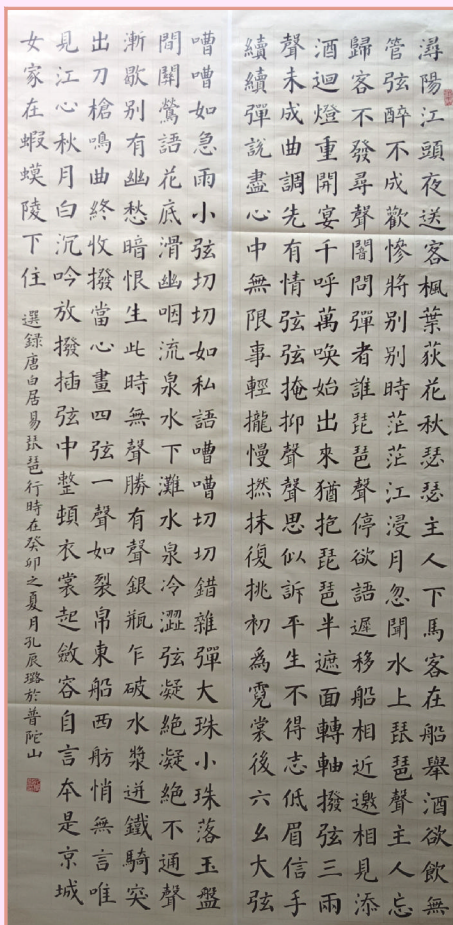 潯陽江頭夜送客楓葉荻花秋瑟瑟主人下馬客在船舉酒欲飲無
管弦醉不成歡慘將别别時茫茫江浸月忽聞水上琵琶聲主人忘
歸客不發尋聲闇問彈者誰琵琶聲停欲語遲移船相近邀相見添
酒迴燈重開宴千呼萬喚始出來猶抱琵琶半遮面轉軸撥弦三兩
聲未成曲調先有情弦弦掩抑聲聲思似訴平生不得志低眉信手
續續彈説盡心中無限事輕攏慢撚抹復挑初為霓裳後六幺大弦
嘈嘈如急雨小弦切切如私語嘈嘈切切錯雜彈大珠小珠落玉盤
間關鶯語花底滑幽咽流泉水下灘水泉冷澀弦凝絶凝絶不通聲
漸歇别有幽愁暗恨生此時無聲勝有聲銀瓶乍破水漿迸鐵騎突
出刀槍鳴曲終收撥當心畫四弦一聲如裂帛東船西舫悄無言唯
見江心秋月白沉吟放撥插弦中整頓衣裳起斂容自言本是京城
女家在蝦蟆陵下住 選録唐白居易琵琶行時在癸卯之夏月孔辰璐於普陀山